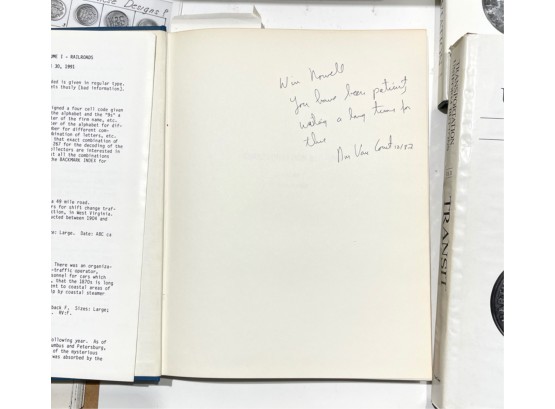 Designs?
UME I - RAILROADS
30, 1981
ded is given in regular type.
s thusly [bad information].
signed a four cell code given
the alphabet and the "9s" a
r of the firm name, etc.
of the alphabet for dif-
mber for different com-
bination of letters, etc.
that exact combination of
287 for the decoding of the
ollectors are interested in
t all the combinations
the BACKMARK INDEX for
a 49 mile road.
rs for shift change traf-
ction, in West Virginia.
ucted between 1904 and
e: Large. Date: ABC ca
There was an organiza-
-traffic operator,
sonnel for cars which
, that the 1870s is long
ent to coastal areas of
ip by coastal steamer
back F. Sizes: Large;
. RF:F.
following year. As of
umbus and Petersburg,
of the mysterious
was absorbed by the
Win Nowell
you have been patient,
waiting a long time for
this
Don Van Court 10/82
TRANSPORTATION
TRANSIT